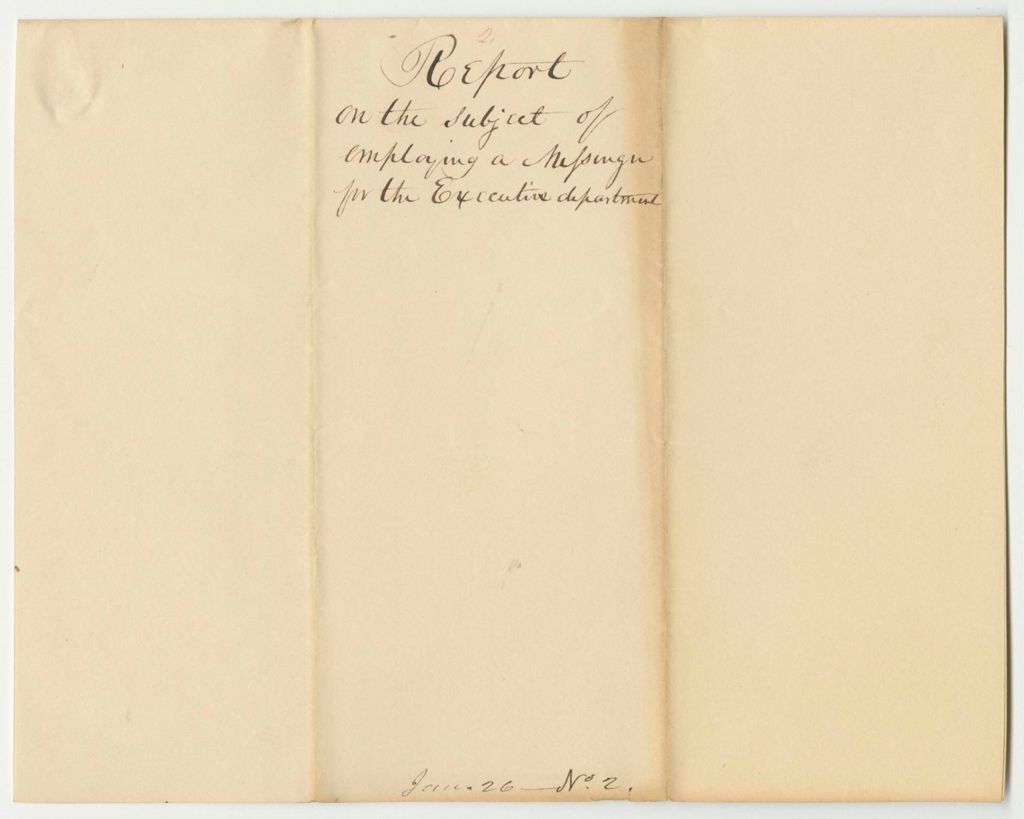 2.
Report
on the subject of
employing a Messenger
for the Executive department
Jan. 26 — No. 2.